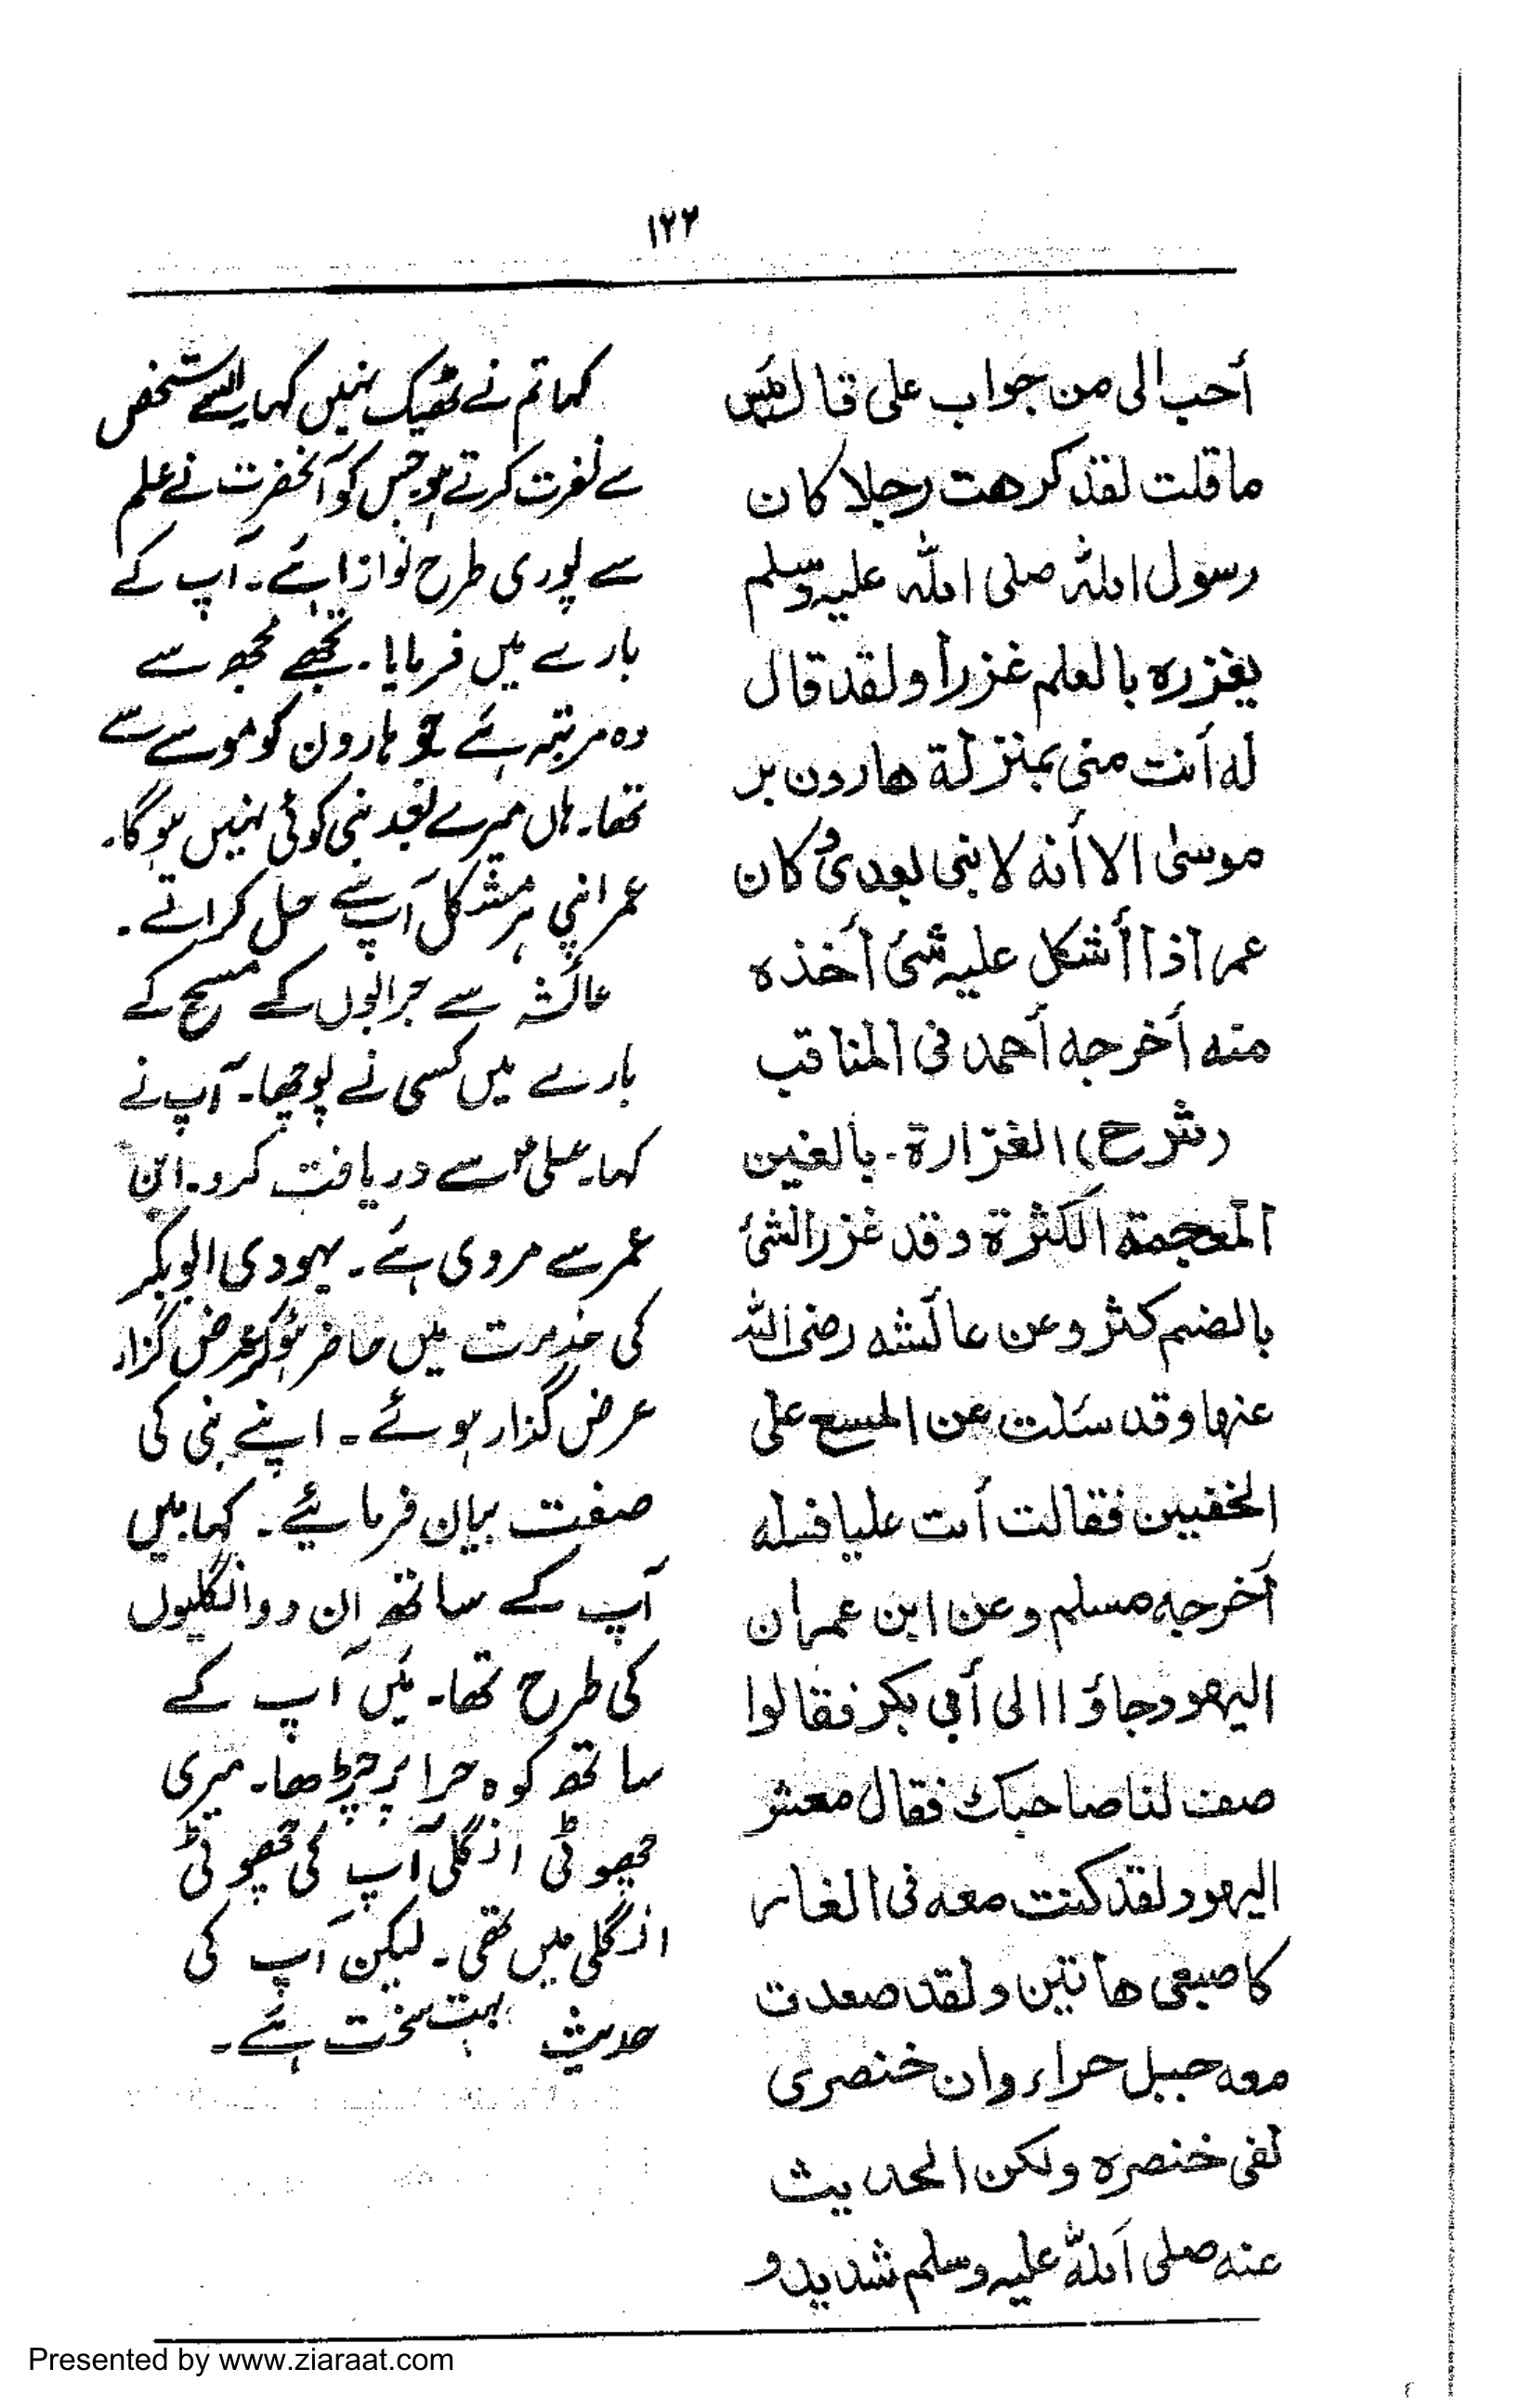 ١٢٢
أحب الى من جواب على قال بئس
ما قلت لقد كرهت رجلا كان
رسول الله صلى الله عليه وسلم
يغزره بالعلم غزراً ولقد قال
له أنت منى بمنزلة هارون بر
موسىٰ الا أنه لا نبى بعدى و كان
عمر اذا أشكل عليه شئ أخذه
منه أخرجه أحمد فى المناقب
(شرح) الغزارة - بالغين
المعجمة الكثرة وقد غزر الشئ
بالضم كثر وعن عائشه رضى الله
عنها وقد سئلت عن المسح على
الخفيين فقالت أىت عليا فسله
أخرجه مسلم وعن ابن عمر ان
اليهود جاؤا الى أبي بكر فقالوا
صف لنا صاحبك فقال معشر
اليهود لقد كنت معه فى الغار
كاصبعى هاتين ولقد صعدت
معه جبل حراء وان خنصرى
لفى خنصره ولكن الحديث
عنه صلى الله عليه وسلم شديد و
کہا تم نے ٹھیک نہیں کہا۔ ایسے شخص
سے نفرت کرتے ہو جس کو آنحضرت نے علم
سے پوری طرح نوازا ہے۔ آپ کے
بارے میں فرمایا۔ تجھے مجھ سے
وہ مرتبہ ہے جو ہارون کو موسے سے
تھا۔ ہاں میرے بعد نبی کوئی نہیں ہوگا۔
عمر اپنی ہر مشکل آپ سے حل کراتے۔
عائشہ سے جرابوں کے مسح کے
بارے میں کسی نے پوچھا۔ آپ نے
کہا۔ علیؑ سے دریافت کرو۔ ابن
عمر سے مروی ہے۔ یہودی ابوبکر
کی خدمت میں حاضر ہو کر عرض گزار
عرض گذار ہوئے۔ اپنے نبی کی
صفت بیان فرمائیے۔ کہا میں
آپ کے ساتھ ان دو انگلیوں
کی طرح تھا۔ میں آپ کے
ساتھ کوہ حرا پر چڑھا۔ میری
چھوٹی انگلی آپ کی چھوٹی
انگلی میں تھی۔ لیکن آپ کی
حدیث بہت سخت ہے۔
Presented by www.ziaraat.com